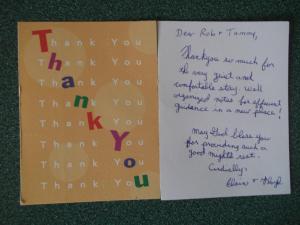 Thank You
Thank You
Thank You
Thank You
Thank You
Thank You
Thank You
Thank You
Dear Rob + Tammy,
Thankyou so much for
the very quiet and
comfortable stay. Well
organized notes for efficient
guidance in a new place!
May God bless you
for providing such a
good night's rest.
Cordially,